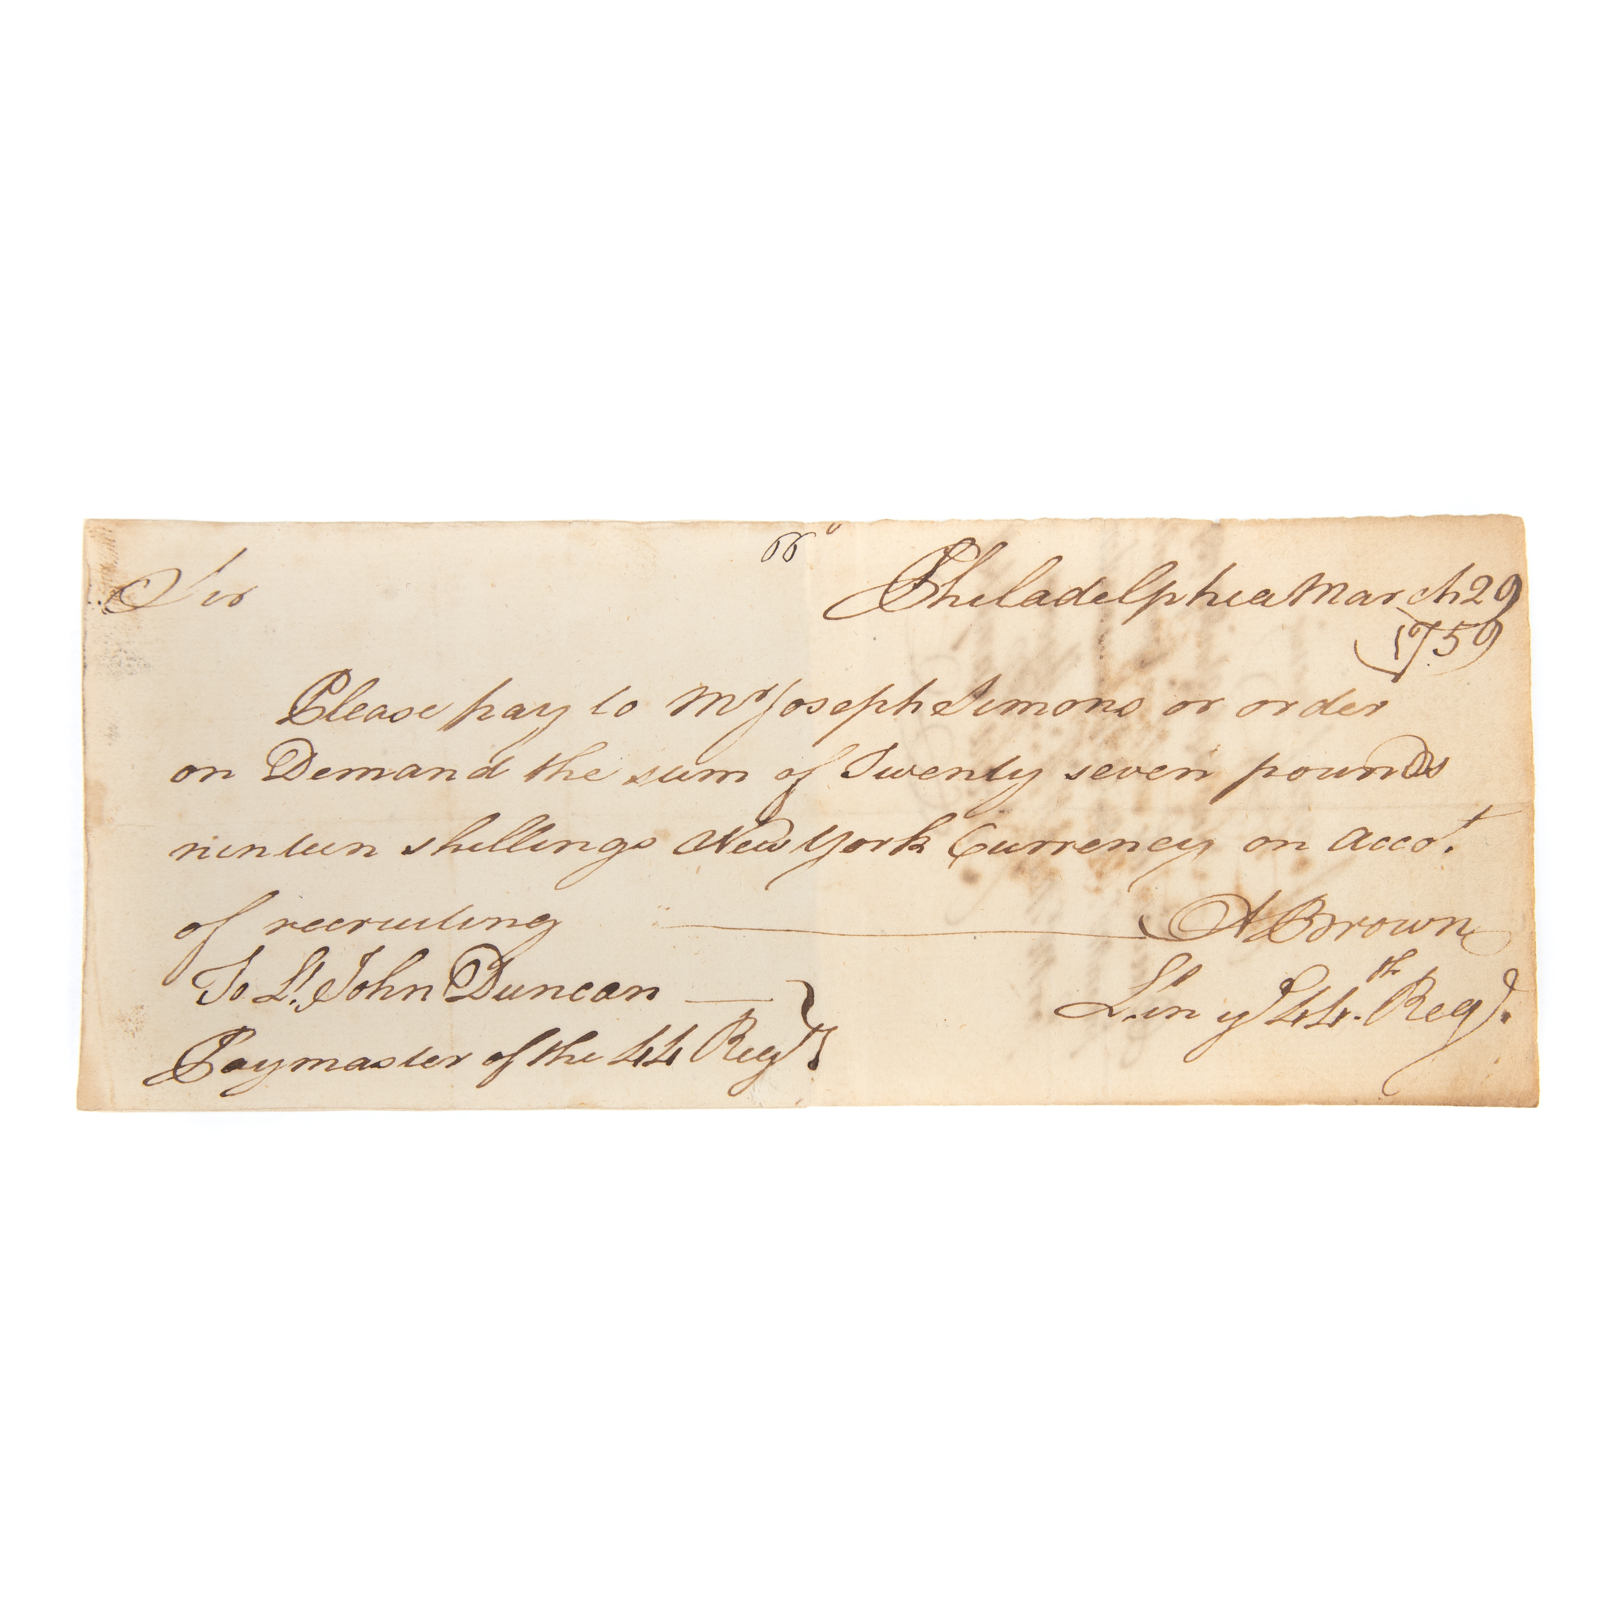 66
Sir Philadelphia March 29
1759
Please pay to Mr Joseph Simons or order
on Demand the sum of Twenty seven pounds
ninteen shillings New York Currency on Accot.
of recruiting A Brown
To Lt. John Duncan Lt in ye 44th. Regt.
Paymaster of the 44 Regt